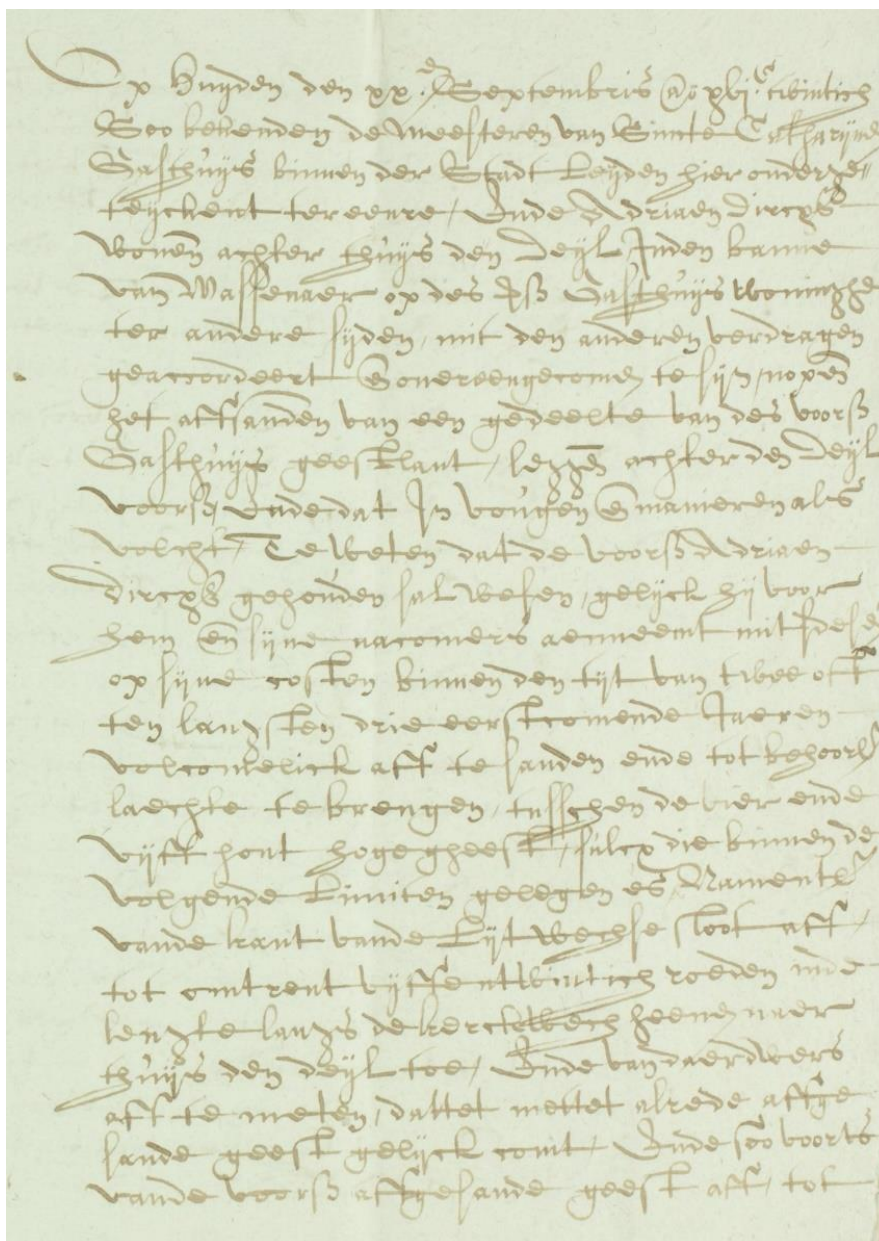 Op huyden den xx.en Septembris a.o xvj.c twintich
Soo bekenden de Meesteren van Sincte Catharijne
Gasthuijs binnen der Stadt Leyden hier onderge-
teyckent ter eenre, Ende Adriaen Dircxss
wonen achter thuijs den Deyl Inden banne
van Wassenaer op des Gasthuijs woninghe
ter andere sijden, mit den anderen verdragen
geaccordeert en overeengecomen te sijn, nopen
het affsanden van een gedeelte van des voorss
Gasthuijs geestlant, leggen achter den Deyl
voorss, Ende dat In vougen en manieren als
volcht, Te weten dat de voorss Adriaen
Dircxss gehouden sal wesen, gelijck hij voor
hem en sijne nacomers aenneemt mits desen
op sijne costen binnen den tijt van twee oft
ten langsten drie eerstcomende Jaeren
volcomelick aff te sanden ende tot behoorl
laechte te brengen, tusschen de vier ende
vijff hont hoge gheest, sulcx die binnen de
volgende Limiten gelegen es, Namentl
vande kant vande Lijtwechse sloot aff,
tot omtrent vijffentwintich roeden inde
lengte langs de kerckwech heenen naer
thuijs den Deyl toe, Ende van daer dwers
aff te meten, dattet mettet alrede affge
sande geest gelijck comt, Ende soo voorts
vande voorss affgesande geest aff, tot